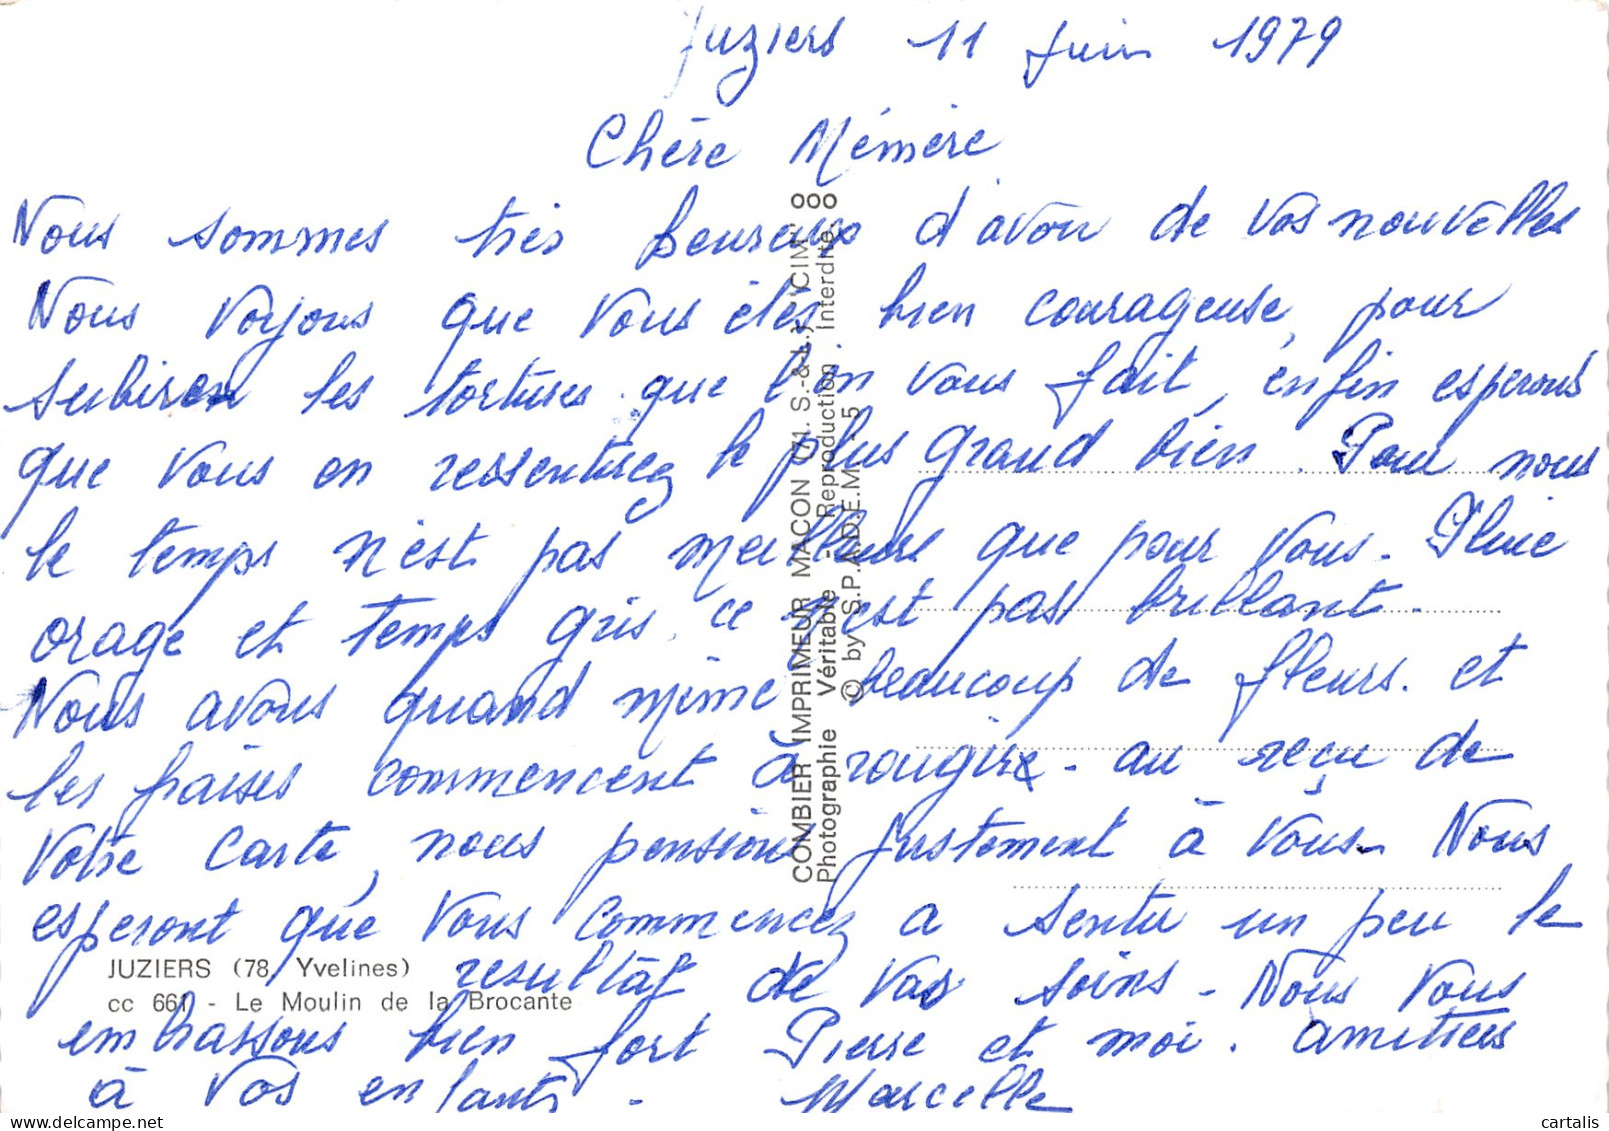 Juziers 11 Juin 1979
Chère Mémère
Nous sommes très heureux d'avoir de vos nouvelles
Nous voyons que vous étes bien courageuse, pour
subiren les tortures que l'on vous fait, enfin esperons
que vous en ressentirez le plus grand bien. Pour nous
le temps n'est pas meilleurs que pour vous. Pluie
orage et temps gris, ce n'est pas brillant.
Nous avons quand même beaucoup de fleurs. et
les fraises commencent à rougir - au reçu de
votre carte, nous pensions justement à vous. Nous
esperont que vous commencez a sentir un peu le
resultat de vos soins - Nous vous
embrassons bien fort Pierre et moi. amitiées
à vos enfants - Marcelle
JUZIERS (78, Yvelines)
cc 661 - Le Moulin de la Brocante
COMBIER IMPRIMEUR MACON (71. S.-&-L.) "CIM"
Photographie Véritable - Reproduction Interdite
© by S.P.A.D.E.M. 5
cartalis